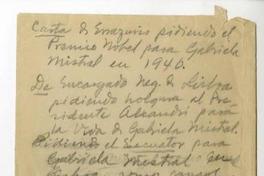 Carta de Errázuriz pidiendo el
Premio Nobel para Gabriela
Mistral en 1946.
De Encargado Neg. de Lisboa
pidiendo holgura al Pre-
sidente Alessandri para
la Vida de Gabriela Mistral.
Pidiendo el Ecuador para
Gabriela Mistral en
como consul